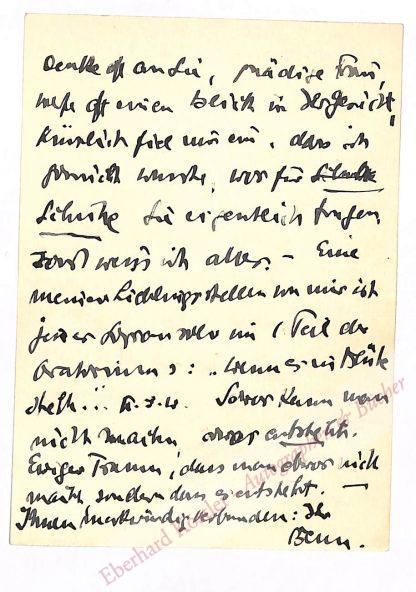 Denke oft an Sie, gnädige Frau,
werfe oft einen Blick in Ihr Gesicht,
Kürzlich fiel mir ein, dass ich
garnicht wusste, was für Schuhe
Schuhe Sie eigentlich tragen
sonst weiss ich alles. – Eine
meiner Lieblingsstellen von mir ist
jener Sopransolo im 1. Teil des
Oratoriums: "wenn es in Blüte
steht.. u.s.w. Sowas kann man
nicht machen sowas entsteht.
Ewiger Traum, dass man etwas nicht
macht sondern dass es entsteht. —
Ihnen merkwürdig verbunden: Ihr
Benn.
Eberhard Köstler Autographen & Bücher